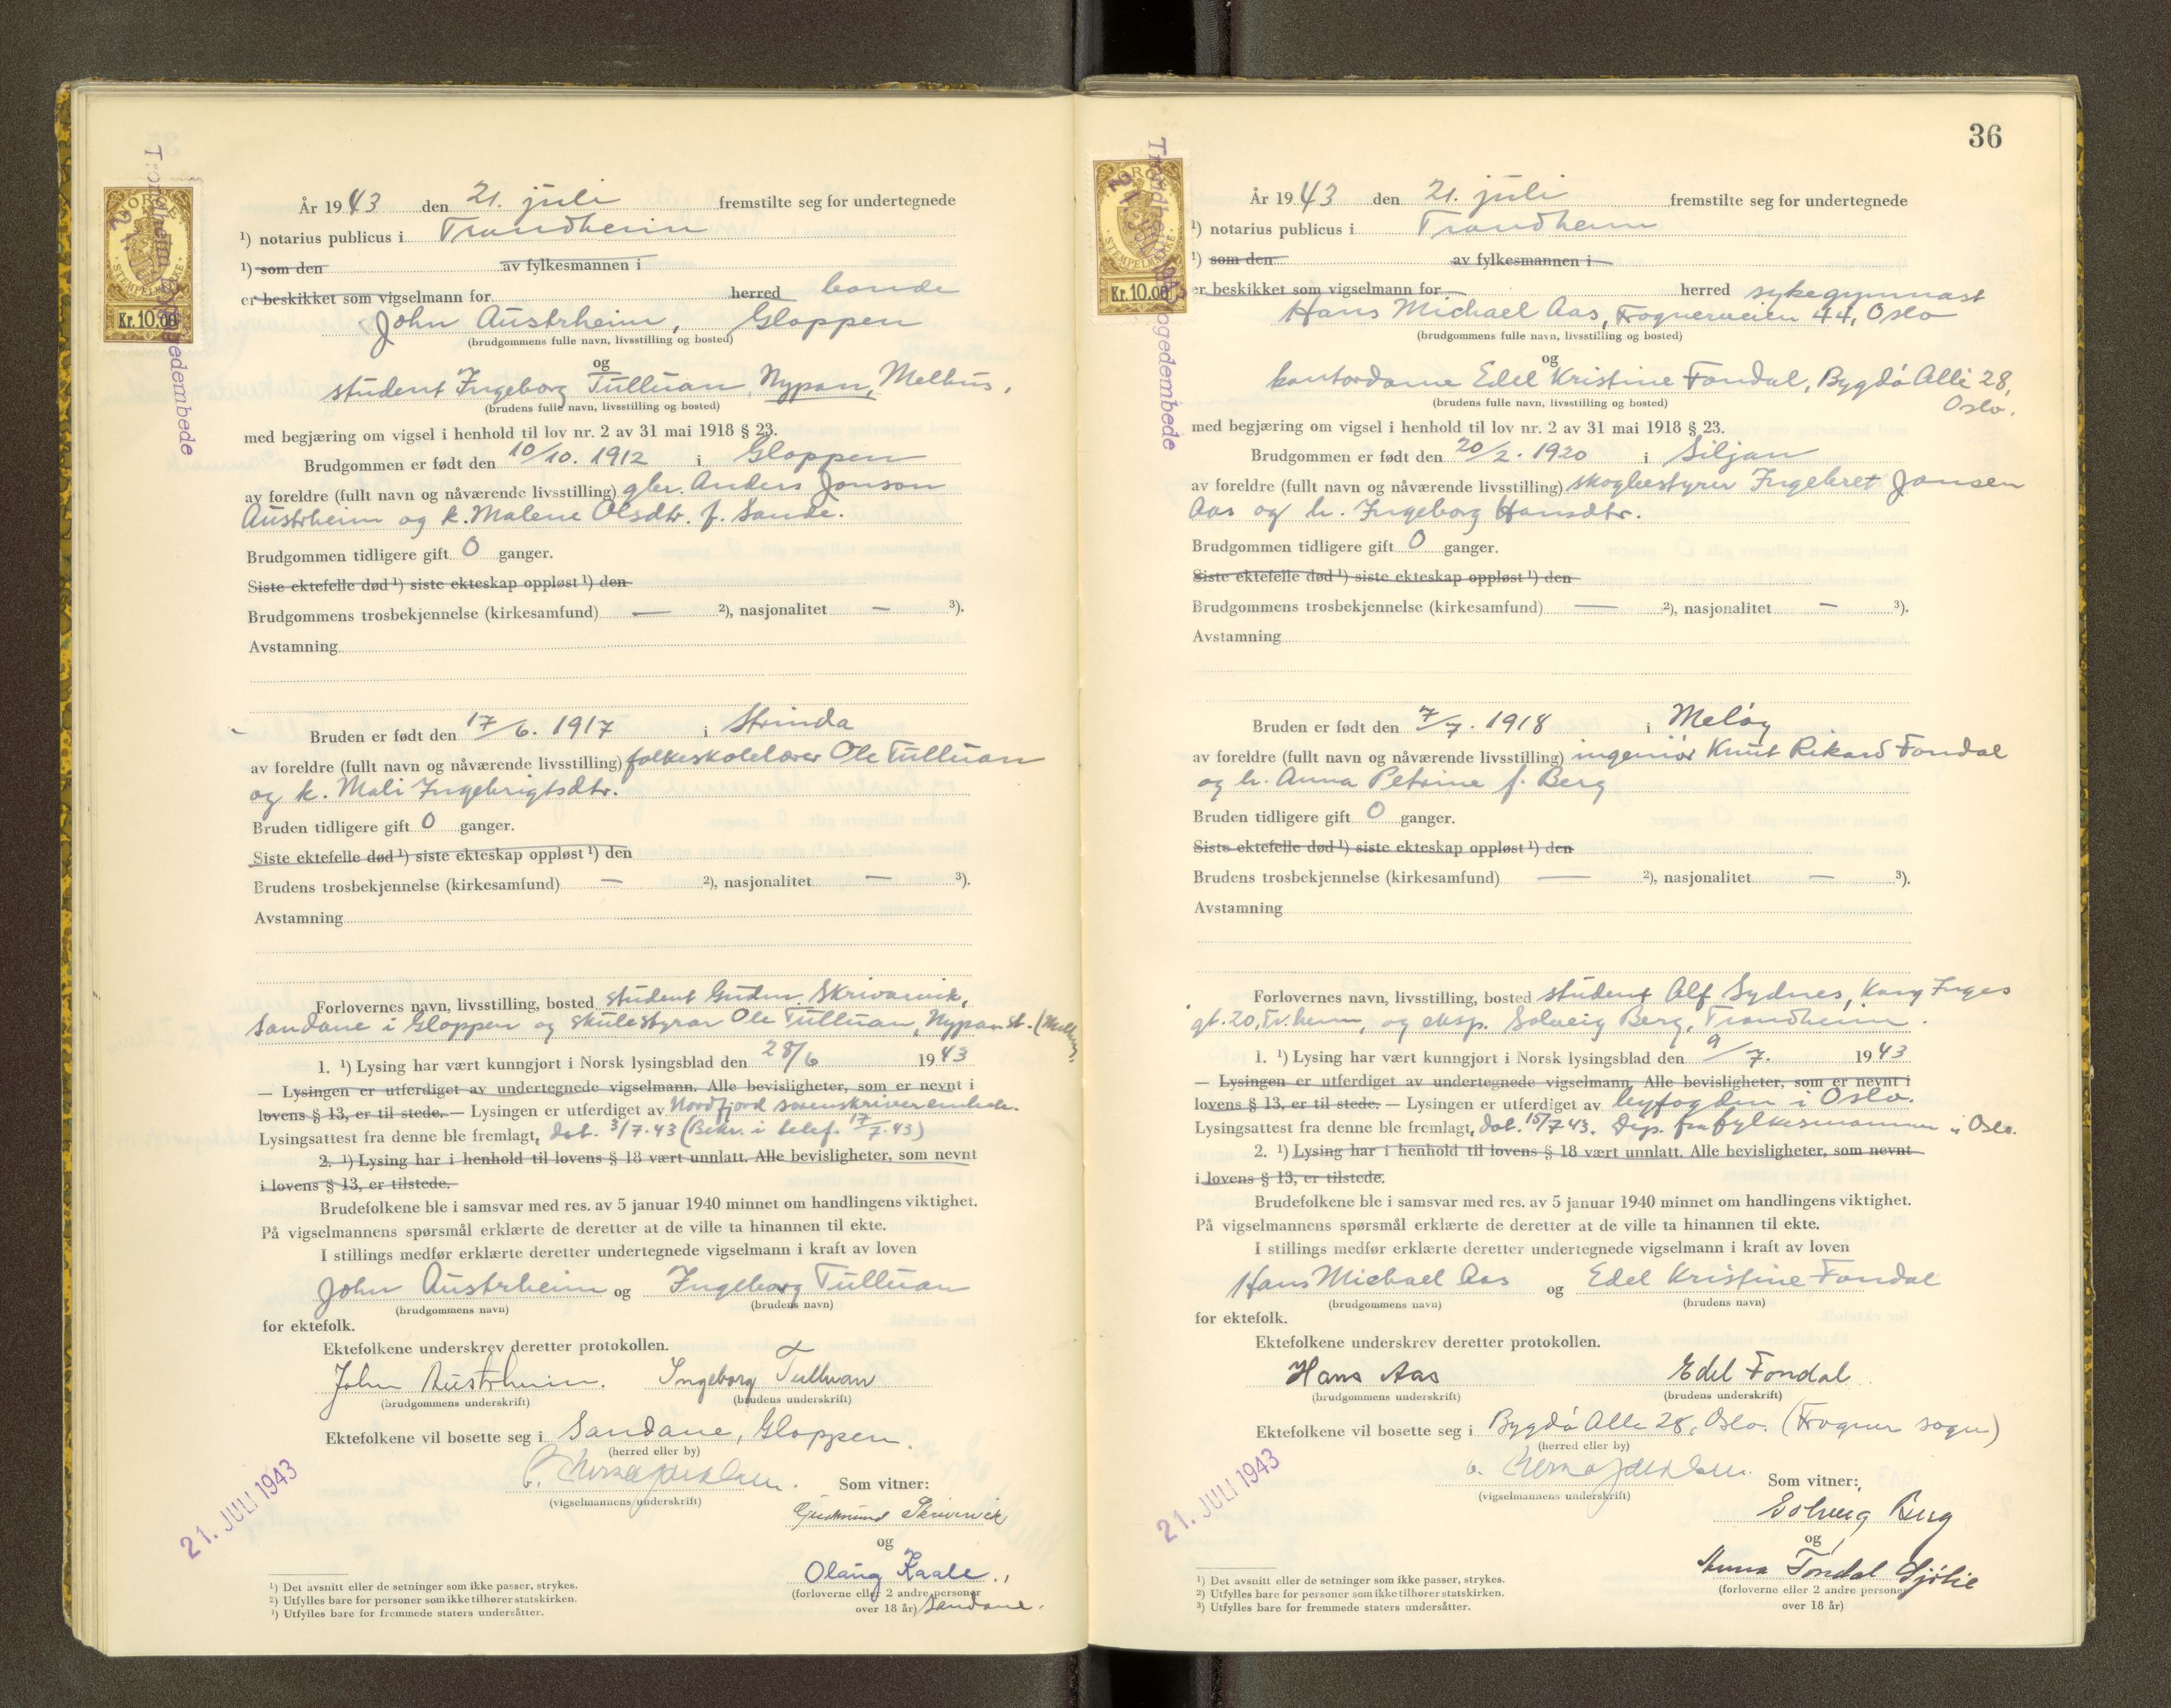 År 1943 den 21. juli fremstilte seg for undertegnede
¹) notarius publicus i Trondheim
¹) som den av fylkesmannen i
er beskikket som vigselmann for herred bonde
John Austrheim, Gloppen
(brudgommens fulle navn, livsstilling og bosted)
og
student Ingeborg Tulluan, Nypan, Melhus.
(brudens fulle navn, livsstilling og bosted)
med begjæring om vigsel i henhold til lov nr. 2 av 31 mai 1918 § 23.
Brudgommen er født den 10/10. 1912 i Gloppen
av foreldre (fullt navn og nåværende livsstilling) gbr. Anders Jonson
Austrheim og k. Malene Olsdtr. f. Sande.
Brudgommen tidligere gift 0 ganger.
Siste ektefelle død ¹) siste ekteskap oppløst ¹) den
Brudgommens trosbekjennelse (kirkesamfund) — ²), nasjonalitet — ³).
Avstamning
Bruden er født den 17/6. 1917 i Strinda
av foreldre (fullt navn og nåværende livsstilling) folkeskolelærer Ole Tulluan
og k. Mali Ingebrigtsdtr.
Bruden tidligere gift 0 ganger.
Siste ektefelle død ¹) siste ekteskap oppløst ¹) den
Brudens trosbekjennelse (kirkesamfund) — ²), nasjonalitet — ³).
Avstamning
Forlovernes navn, livsstilling, bosted student Gudm. Skrivarvik,
Sandane i Gloppen og skulestyrar Ole Tulluan, Nypan st. (Melhus)
1. ¹) Lysing har vært kunngjort i Norsk lysingsblad den 28/6 1943
— Lysingen er utferdiget av undertegnede vigselmann. Alle bevisligheter, som er nevnt i
lovens § 13, er til stede. — Lysingen er utferdiget av Nordfjord sorenskriverembede.
Lysingsattest fra denne ble fremlagt, dat. 3/7.43 (Bekr. i telef. 17/7.43)
2. ¹) Lysing har i henhold til lovens § 18 vært unnlatt. Alle bevisligheter, som nevnt
i lovens § 13, er tilstede.
Brudefolkene ble i samsvar med res. av 5 januar 1940 minnet om handlingens viktighet.
På vigselmannens spørsmål erklærte de deretter at de ville ta hinannen til ekte.
I stillings medfør erklærte deretter undertegnede vigselmann i kraft av loven
John Austrheim og Ingeborg Tulluan
(brudgommens navn) (brudens navn)
for ektefolk.
Ektefolkene underskrev deretter protokollen.
John Austrheim. Ingeborg Tulluan
(brudgommens underskrift) (brudens underskrift)
Ektefolkene vil bosette seg i Sandane, Gloppen.
(herred eller by)
Som vitner:
(vigselmannens underskrift)
Gudmund Skrivarvik
og
Olaug Kaale.,
(forloverne eller 2 andre personer
over 18 år) Sandane.
21. JULI 1943
¹) Det avsnitt eller de setninger som ikke passer, strykes.
²) Utfylles bare for personer som ikke tilhører statskirken.
³) Utfylles bare for fremmede staters undersåtter.
NORGE
STEMPELMERKE
Kr. 10.00
Trondheim byfogedembede
36
År 1943 den 21. juli fremstilte seg for undertegnede
¹) notarius publicus i Trondheim
¹) som den av fylkesmannen i
er beskikket som vigselmann for herred sykegymnast
Hans Michael Aas, Frognerveien 44, Oslo
(brudgommens fulle navn, livsstilling og bosted)
og
kontordame Edel Kristine Fondal, Bygdö Alle 28,
Oslo.
(brudens fulle navn, livsstilling og bosted)
med begjæring om vigsel i henhold til lov nr. 2 av 31 mai 1918 § 23.
Brudgommen er født den 20/2. 1920 i Siljan
av foreldre (fullt navn og nåværende livsstilling) skogbestyrer Ingebret Jansen
Aas og h. Ingeborg Hansdtr.
Brudgommen tidligere gift 0 ganger.
Siste ektefelle død ¹) siste ekteskap oppløst ¹) den
Brudgommens trosbekjennelse (kirkesamfund) — ²), nasjonalitet — ³).
Avstamning
Bruden er født den 7/7. 1918 i Meløy
av foreldre (fullt navn og nåværende livsstilling) ingeniør Knut Rikard Fondal
og h. Anna Petrine f. Berg
Bruden tidligere gift 0 ganger.
Siste ektefelle død ¹) siste ekteskap oppløst ¹) den
Brudens trosbekjennelse (kirkesamfund) — ²), nasjonalitet — ³).
Avstamning
Forlovernes navn, livsstilling, bosted student Alf Sydnes, Kong Inges
gt. 20, Tr.heim, og eksp. Solveig Berg, Trondheim.
1. ¹) Lysing har vært kunngjort i Norsk lysingsblad den 9/7. 1943
— Lysingen er utferdiget av undertegnede vigselmann. Alle bevisligheter, som er nevnt i
lovens § 13, er til stede. — Lysingen er utferdiget av byfogden i Oslo.
Lysingsattest fra denne ble fremlagt, dat. 15/7 43. Disp. fra fylkesmannen i Oslo.
2. ¹) Lysing har i henhold til lovens § 18 vært unnlatt. Alle bevisligheter, som nevnt
i lovens § 13, er tilstede.
Brudefolkene ble i samsvar med res. av 5 januar 1940 minnet om handlingens viktighet.
På vigselmannens spørsmål erklærte de deretter at de ville ta hinannen til ekte.
I stillings medfør erklærte deretter undertegnede vigselmann i kraft av loven
Hans Michael Aas og Edel Kristine Fondal
(brudgommens navn) (brudens navn)
for ektefolk.
Ektefolkene underskrev deretter protokollen.
Hans Aas Edel Fondal
(brudgommens underskrift) (brudens underskrift)
Ektefolkene vil bosette seg i Bygdö Alle 28, Oslo. (Frogner sogn)
(herred eller by)
Som vitner:
(vigselmannens underskrift)
Solveig Berg
og
Anna Fondal
(forloverne eller 2 andre personer
over 18 år)
21. JULI 1943
¹) Det avsnitt eller de setninger som ikke passer, strykes.
²) Utfylles bare for personer som ikke tilhører statskirken.
³) Utfylles bare for fremmede staters undersåtter.
NORGE
STEMPELMERKE
Kr. 10.00
Trondheim byfogedembede